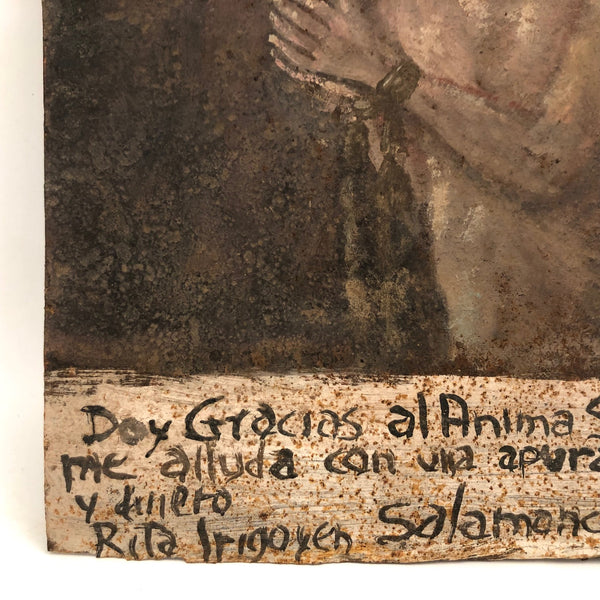 Doy Gracias al Anima S
me alluda con una apura
y dinero
Rita Irigoyen Salamanc